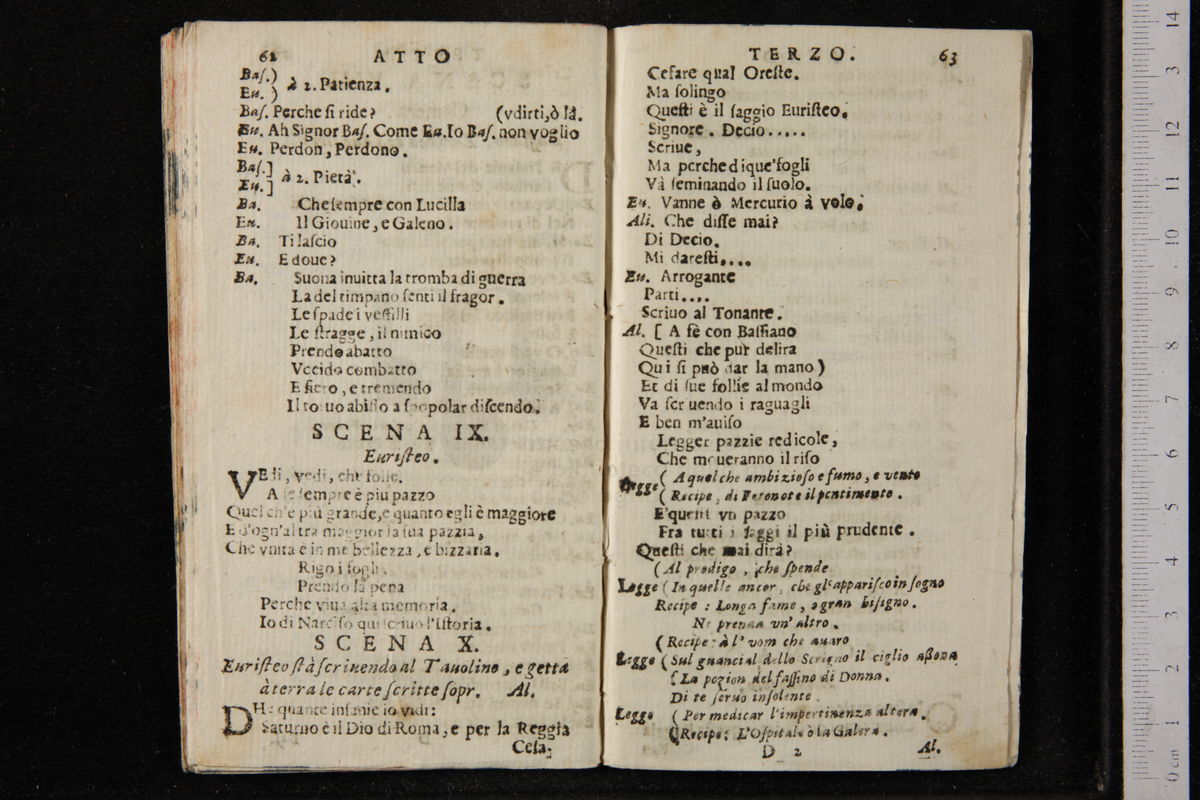 62 ATTO
Baſ.)
Eu. ) à 2. Patienza.
Baſ. Perche ſi ride? (vdirti, ò là.
Eu. Ah Signor Baſ. Come Eu. Io Baſ. non voglio
Eu. Perdon, Perdono.
Baſ.]
Eu.] à 2. Pietà.
Ba. Che ſempre con Lucilla
Eu. Il Giouine, e Galeno.
Ba. Ti laſcio
Eu. E doue?
Ba. Suona inuitta la tromba di guerra
La del timpano ſenti il fragor.
Le ſpade i veſſilli
Le ſtragge, il nimico
Prendo abatto
Vccido combatto
E fiero, e tremendo
Il to uo abiſſo a ſpopolar diſcendo.
SCENA IX.
Euriſteo.
VEdi, vedi, che folle.
A ſe ſempre è più pazzo
Quel ch'e più grande, e quanto egli è maggiore
E d'ogn'altra maggior la ſua pazzia,
Che vnita è in me bellezza, e bizzaria.
Rigo i fogli,
Prendo la pena
Perche viua alta memoria.
Io di Narciſo qui ſcriuo l'iſtoria.
SCENA X.
Euriſteo ſtà ſcriuendo al Tauolino, e getta
à terra le carte ſcritte ſopr. Al.
DHe quante inſanie io vidi:
Saturno è il Dio di Roma, e per la Reggia
Ceſa-
TERZO. 63
Ceſare qual Oreſte.
Ma ſolingo
Queſti è il ſaggio Euriſteo.
Signore. Decio.....
Scriue,
Ma perche di que' fogli
Và ſeminando il ſuolo.
Eu. Vanne ò Mercurio à volo;
Ali. Che diſſe mai?
Di Decio.
Mi dareſti....
Eu. Arrogante
Parti....
Scriuo al Tonante.
Al. [ A fè con Baſſiano
Queſti che pur delira
Qui ſi può dar la mano)
Et di ſue follie al mondo
Va ſcriuendo i raguagli
E ben m'auiſo
Legger pazzie redicole,
Che moueranno il riſo
Legge ( A quel che ambizioſo e fumo, e vento
( Recipe, di Fetonte il pentimento.
E' queſti vn pazzo
Fra tutti i ſaggi il più prudente.
Queſti che mai dirà?
( Al prodigo, che ſpende
Legge ( In quelle ancor, che gl' appariſco in ſogno
Recipe: Longa fame, e gran biſigno.
Ne prenda vn' altro.
( Recipe: à l' vom che auaro
Legge ( Sul guancial dello Scrigno il ciglio aſſonna
( La pozion del faſſino di Donna.
Di te ſeruo inſolente
Legge ( Per medicar l'impertinenza altera.
( Recipe: L'Oſpitale ò la Galera.
D 2 Al.
0 cm 1 2 3 4 5 6 7 8 9 10 11 12 3 14